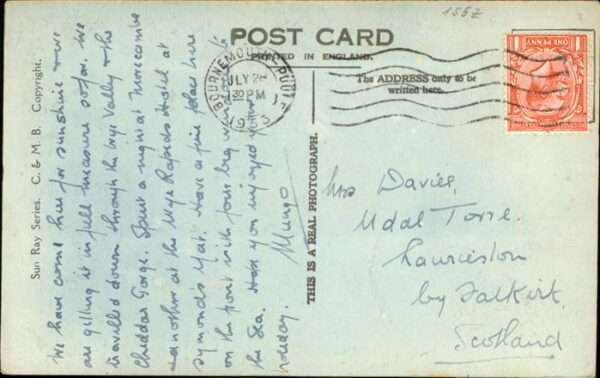 1552
POST CARD
PRINTED IN ENGLAND.
The ADDRESS only to be
written here.
BOURNEMOUTH POOLE
JLY 2
PM
19 3
ONE PENNY
Sun Ray Series. C. & M. B. Copyright.
We have come here for sunshine & we
are getting it in full measure so far. We
travelled down through the Wye Valley & the
Cheddar Gorge. Spent a night at Morecambe
& another at the Wye Rapids Hotel at
Symonds Yat. Have a fine place here
on the front with four big windows to
the Sea. Hope you enjoyed your
holiday.
Mungo
THIS IS A REAL PHOTOGRAPH.
Mrs Davies,
Udal Torre.
Laurieston
by Falkirk.
Scotland